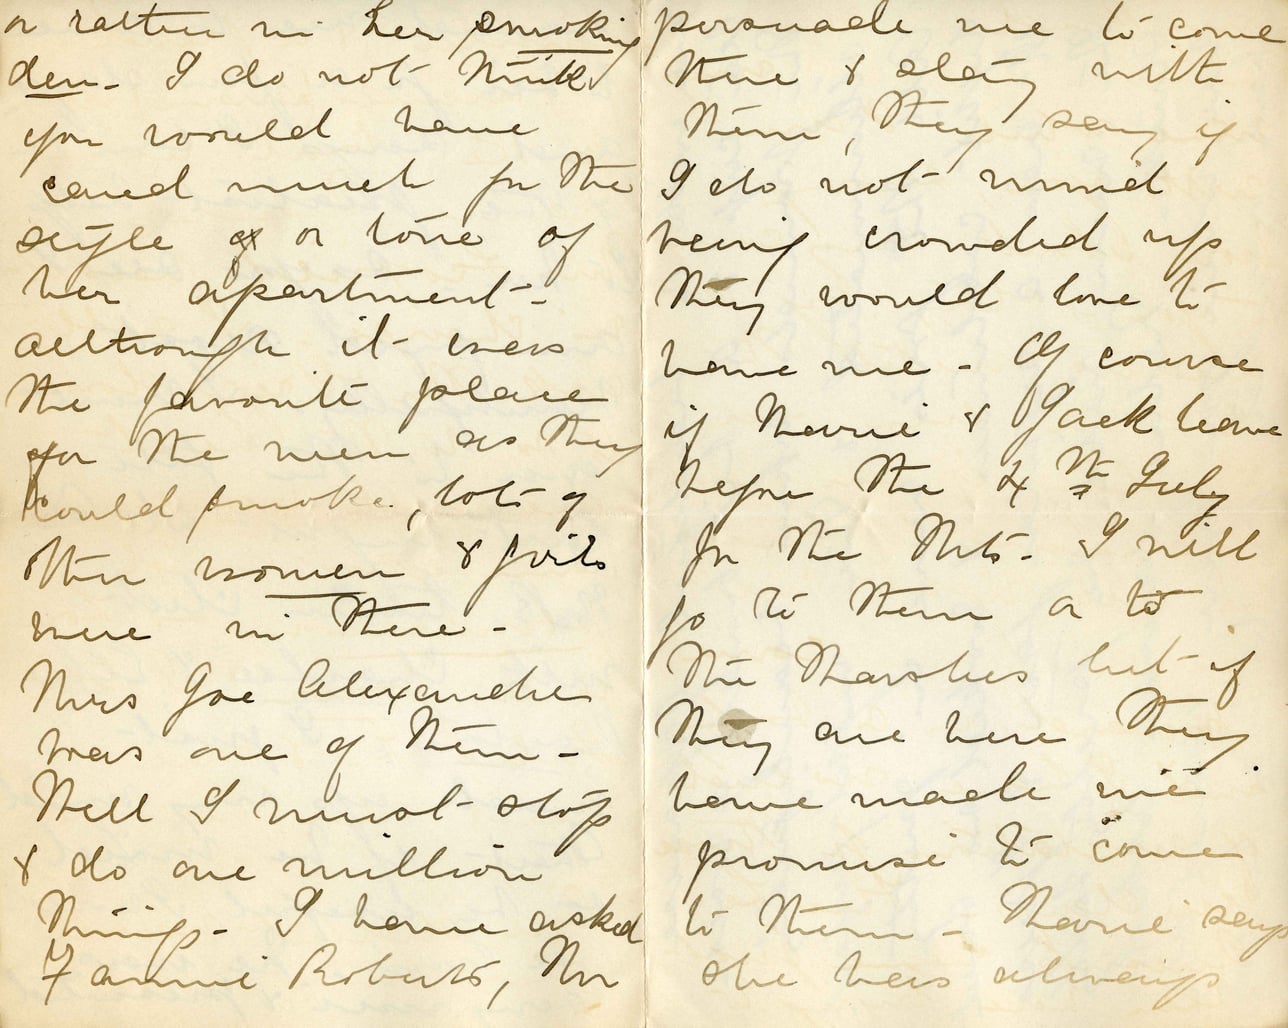 or rather in her smoking
den - I do not think
you would have
cared much for the
style or or tone of
her apartment -
although it was
the favorite place
for the men as they
could smoke, lots of
the women & girls
were in there -
Mrs Joe Alexander
was one of them -
Well I must stop
& do one million
things - I have asked
Fannie Roberts, Mr
persuade me to come
there & stay with
them, they say if
I do not mind
being crowded up
they would love to
have me - Of course
if Marie & Jack leave
before the 4th July
for the Mts - I will
go to them or to
the Marshes but if
they are here they
have made me
promise to come
to them - Marie says
she has always